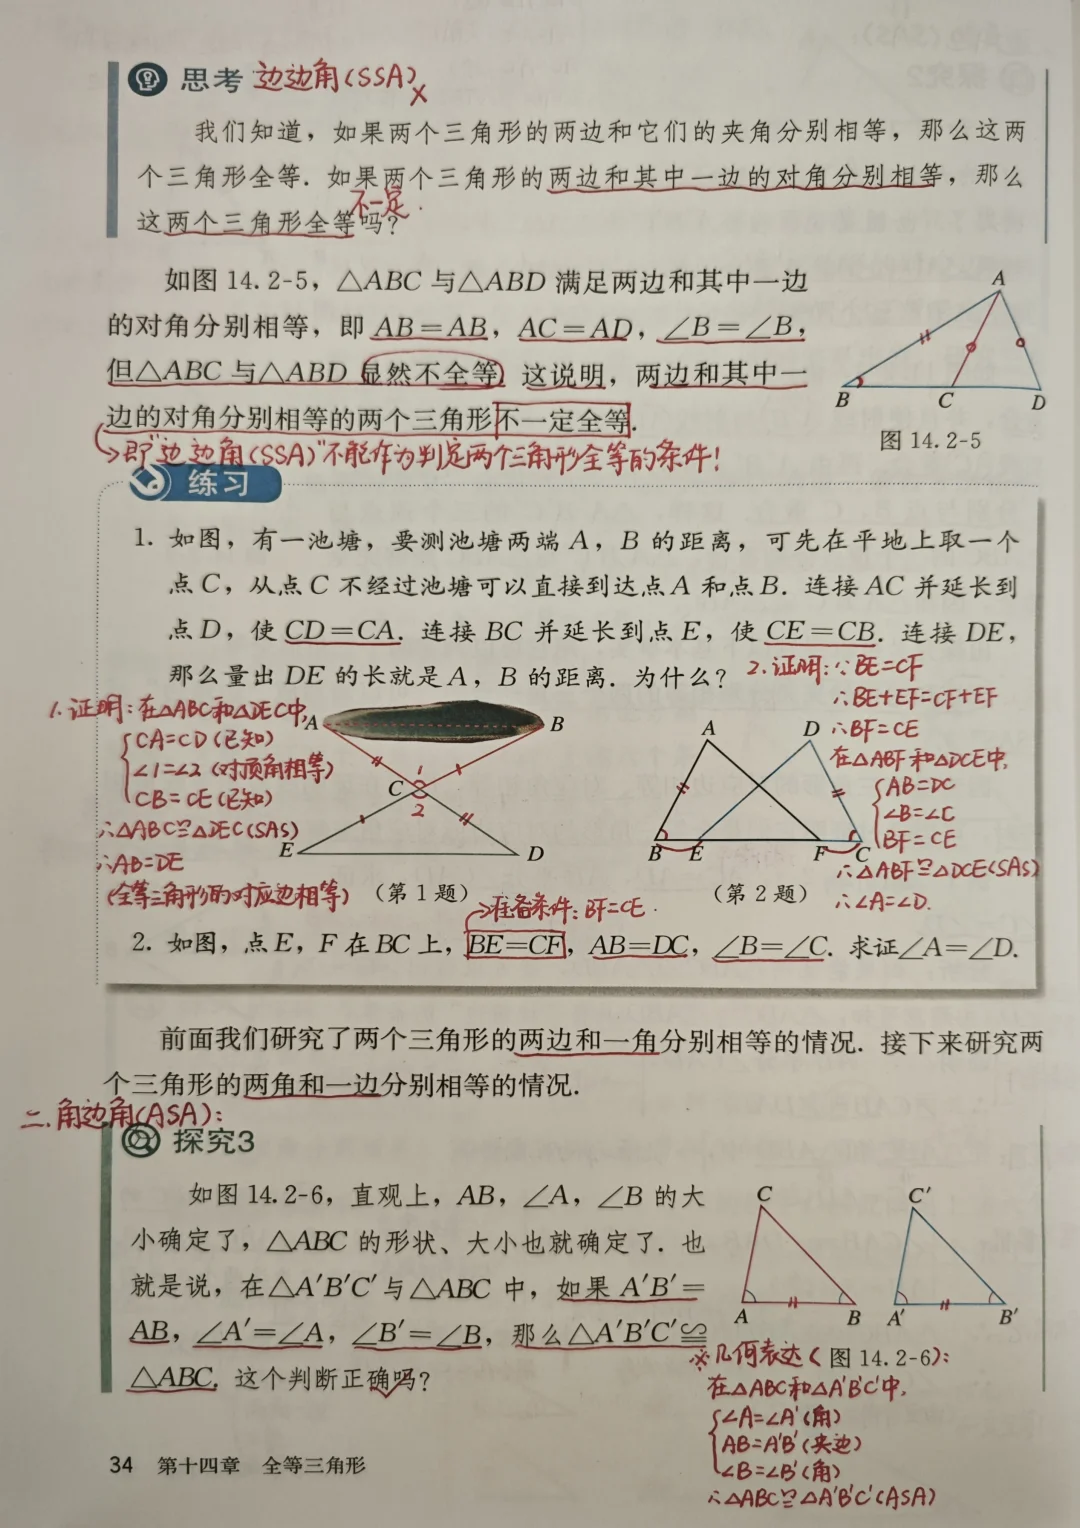 思考 边边角(SSA)×
我们知道，如果两个三角形的两边和它们的夹角分别相等，那么这两
个三角形全等．如果两个三角形的两边和其中一边的对角分别相等，那么
不一定．
这两个三角形全等吗？
如图 14.2-5，△ABC 与△ABD 满足两边和其中一边
的对角分别相等，即 AB＝AB，AC＝AD，∠B＝∠B，
但△ABC 与△ABD 显然不全等．这说明，两边和其中一
边的对角分别相等的两个三角形不一定全等．
→即"边边角(SSA)"不能作为判定两个三角形全等的条件！
A
B C D
图 14.2-5
练习
1. 如图，有一池塘，要测池塘两端 A，B 的距离，可先在平地上取一个
点 C，从点 C 不经过池塘可以直接到达点 A 和点 B．连接 AC 并延长到
点 D，使 CD＝CA．连接 BC 并延长到点 E，使 CE＝CB．连接 DE，
那么量出 DE 的长就是 A，B 的距离．为什么？
1. 证明：在△ABC和△DEC中，
CA=CD (已知)
∠1=∠2 (对顶角相等)
CB=CE (已知)
∴△ABC≌△DEC(SAS)
∴AB=DE
(全等三角形的对应边相等)
A B
1
C
2
E D
（第 1 题）
2. 证明：∵BE=CF
∴BE+EF=CF+EF
∴BF=CE
在△ABF和△DCE中，
AB=DC
∠B=∠C
BF=CE
∴△ABF≌△DCE(SAS)
∴∠A=∠D.
A D
B E F C
（第 2 题）
→准备条件：BF=CE．
2. 如图，点 E，F 在 BC 上，BE＝CF，AB＝DC，∠B＝∠C．求证∠A＝∠D．
前面我们研究了两个三角形的两边和一角分别相等的情况．接下来研究两
个三角形的两角和一边分别相等的情况．
二．角边角(ASA)：
探究3
如图 14.2-6，直观上，AB，∠A，∠B 的大
小确定了，△ABC 的形状、大小也就确定了．也
就是说，在△A′B′C′与△ABC 中，如果 A′B′＝
AB，∠A′＝∠A，∠B′＝∠B，那么△A′B′C′≌
△ABC．这个判断正确吗？
✓
C C′
A B A′ B′
※几何表达（图 14.2-6）：
在△ABC和△A'B'C'中，
∠A=∠A'(角)
AB=A'B'(夹边)
∠B=∠B'(角)
∴△ABC≌△A'B'C'(ASA)
34 第十四章 全等三角形